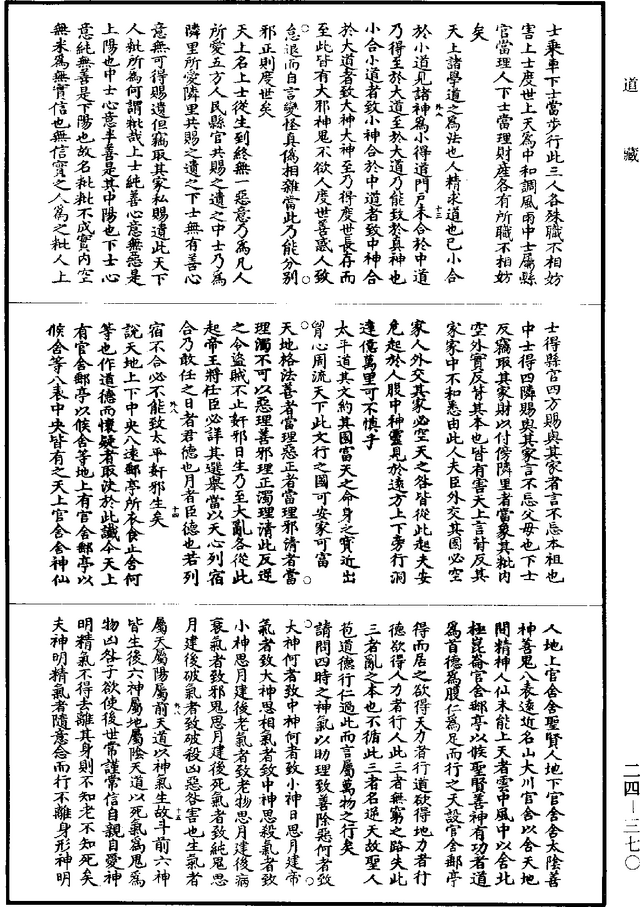 道藏
士乘車下士當步行此三人各殊職不相妨
害上士度世上天為中和調風雨中士屬縣
官當理人下士當理財產各有所職不相妨
矣
天上諸學道之為法也人精求道也已小合
於小道見諸神為小得道門戶未合於中道
乃得至於大道至於大道乃能致於真神也
小合小道者致小神合於中道者致中神合
於大道者致大神大神至乃得度世長存而
至此皆有大邪神鬼不欲人度世善惑人致
怠退而自言變怪真偽相雜當此乃能分別
邪正則度世矣
天上名上士從生到終無一惡意乃為凡人
所愛五方人民縣官共賜之遺之中士乃為
隣里所愛隣里共賜之遺之下士無有善心
意無可得賜遺但竊取其家私賜遺此天下
人粃所為何謂粃哉上士純善心意無惡是
上陽也中士心意半善是其中陽也下士心
意純無善是下陽也故名粃粃不成實內空
無米為無實信也無信實之人為之粃人上
士得縣官四方賜與其家者言不忘本祖也
中士得四隣賜與其家言不忘父母也下士
反竊取其家財以付傍隣里者當象其粃內
空外實反背其本也皆有害天上言背反其
家家中不和悉由此人夫臣外交其國必空
家人外交其家必空天之咎皆從此起夫安
危起於人腹中神靈見於遠方上下旁行洞
達億萬里可不慎乎
太平道其文約其國富天之命身之寶近出
胷心周流天下此文行之國可安家可富
天地格法善者當理惡正者當理邪清者當
理濁不可以惡理善邪理正濁理清此反逆
之令盜賊不止姧邪日生乃至大亂各從此
起帝王將任臣必詳其選舉當以天心列宿
合乃敢任之日者君德也月者臣德也若列
宿不合必不能致太平姧邪生矣
說天地上下中央八遠郵亭所衣食止舍何
等也作道德而懷疑者取決於此讖今天上
有官舍郵亭以候舍等地上有官舍郵亭以
候舍等八表中央皆有之天上官舍舍神仙
人地上官舍舍聖賢人地下官舍舍太陰善
神善鬼八表遠近名山大川官舍以舍天地
間精神人仙未能上天者雲中風中以舍北
極崑崙官舍郵亭以候聖賢善神有功者道
為首德為腹仁為足而行之天設官舍郵亭
得而居之欲得天力者行道欲得地力者行
德欲得人力者行人此三者無窮之路失此
三者亂之本也不循此三者名逆天故聖人
苞道德行仁過此而言屬萬物之行矣
請問四時之神氣以助理致善除惡何者致
大神何者致中神何者致小神曰思月建帝
氣者致大神思相氣者致中神思微氣者致
小神思月建後老氣者致老物思月建後病
衰氣者致邪鬼思月建後死氣者致純鬼思
月建後破氣者致破殺凶惡咎害也生氣者
屬天屬陽屬前天道以神氣生故斗前六神
皆生後六神屬地屬陰天道以死氣為鬼為
物凶咎子欲使後世常謹常信自親自愛神
明精氣不得去離其身則不知老不知死矣
夫神明精氣者隨意念而行不離身形神明
外八
十三
外八
十四
外八
十五
二四—三七〇